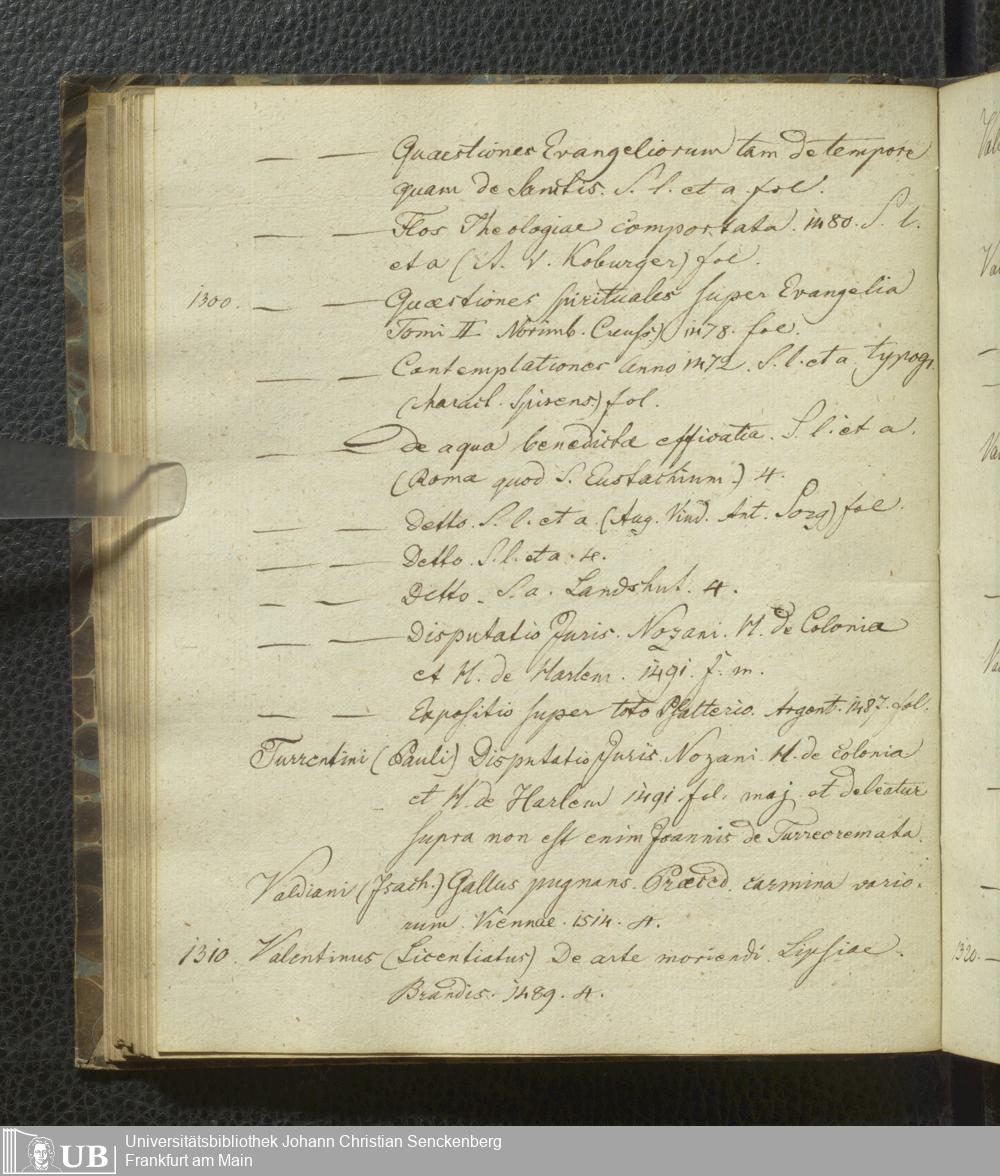 — — Quaestiones Evangeliorum tam de tempore
quam de Sanctis. S. l. et a. fol.
— — Flos Theologiae comportata. 1480. S. l.
et a (A. V. Koburger) fol.
1300. — — Quæstiones spirituales super Evangelia
Tomi II. Norimb. Creuss.) 1478. fol.
— — Contemplationes Anno 1472. S. l. et a typogr.
(charact. Spirens.) fol.
— — de aqua benedictæ efficatia. S. l. et a.
(Romæ quod S. Eustachium.) 4.
— — detto. S. l. et a. (Aug. Vind. Ant. Sorg) fol.
— — Detto. S. l. et a. 4.
— — Detto. S. a. Landshut. 4.
— — Disputatio Juris. Nozani. H. de Colonia
et H. de Harlem. 1491. f. m.
— — Expositio super toto Psalterio. Argent. 1487. fol.
Turrentini (Pauli) Disputatio Juris. Nozani H. de Colonia
et H. de Harlem 1491. fol. maj. et deleatur
supra non est enim Joannis de Turrecremata.
Vadiani (Joach.) Gallus pugnans. Præced. carmina vario-
rum. Viennae. 1514. 4.
1310. Valentinus (Licentiatus) De arte moriendi. Lipsiae.
Brandis. 1489. 4.
1320. —
UB
Universitätsbibliothek Johann Christian Senckenberg
Frankfurt am Main